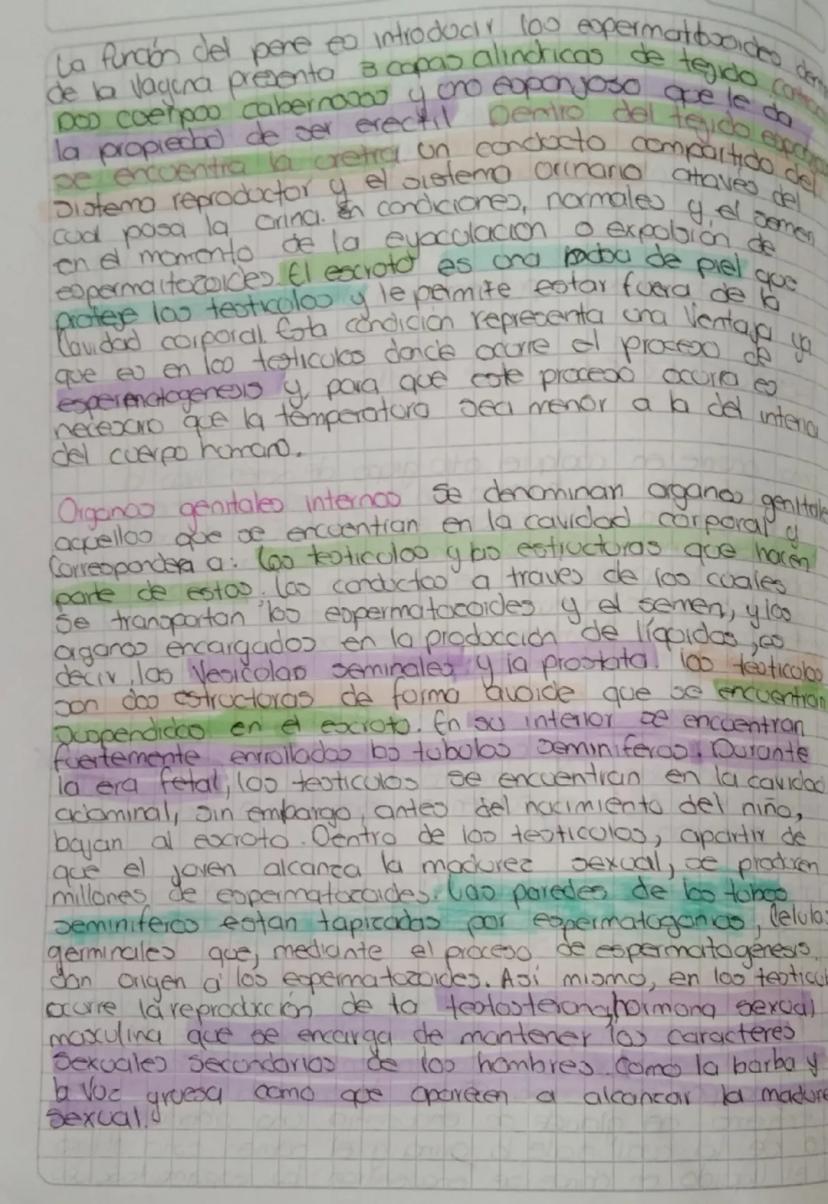 La función del pene es introducir los espermatbozoides den
de la vagina presenta 3 capas alindricas de tejido
Dos cuerpos cabernosos y uno esponjoso que le da
la propiedad de ser erectil Dentro del tejido espon
se encuentra la uretra un conducto compartido del
sistema reproductor y el sistema orinario através del
cual pasa la orina. En condiciones, normales y, el semen
en el momento de la eyaculacion o expolsión de
espermaitozoides. El escroto es una bolsa de piel que
protege los testiculos y le permite estar fuera de la
Cavidad corporal. Esta condición representa una Ventaja ya
que es en los testiculos donde ocurre el proceso de
esperematogenesis y, para que este proceso ocurra es
necesario que la temperatura sea menor a la del interio
del cuerpo homano.
Organos genitales internos Se denominan organos genitale
aquellos que se encuentran en la cavidad corporal y
Corresponden a: los testiculos y los estructuras que hacen
parte de estos. los conductos a traves de los cuales
se transportan los espermatozoides y el semen, y los
organos encargados en la producción de líquidos, es
decir, las Vesicolas seminales y la prostata. los testiculos
son dos estructuras de forma ovoide que se encuentran
suspendidos en el escroto. En su interior se encuentran
fuertemente enrollados los tubulos seminiferos. Durante
la era fetal, los testiculos se encuentran en la cavidad
adominal, sin embargo, antes del nacimiento del niño,
bajan al escroto. Dentro de los testiculos, apartir de
que el joven alcanza la madurez sexual, se producen
millones de espermatozoides. Las paredes de los tobos
seminiferos estan tapizadas por espermatogonias, Celulas
germinales que, mediante el proceso de espermatogenesis,
dan origen a los espermatozoides. Así mismo, en los testicul
ocurre la reproducción de la testosterona, hormona sexual
masculina que se encarga de mantener los caracteres
sexuales secundarios de los hombres. Como la barba y
la voz gruesa como que aparecen a alcanzar la madure
sexual.